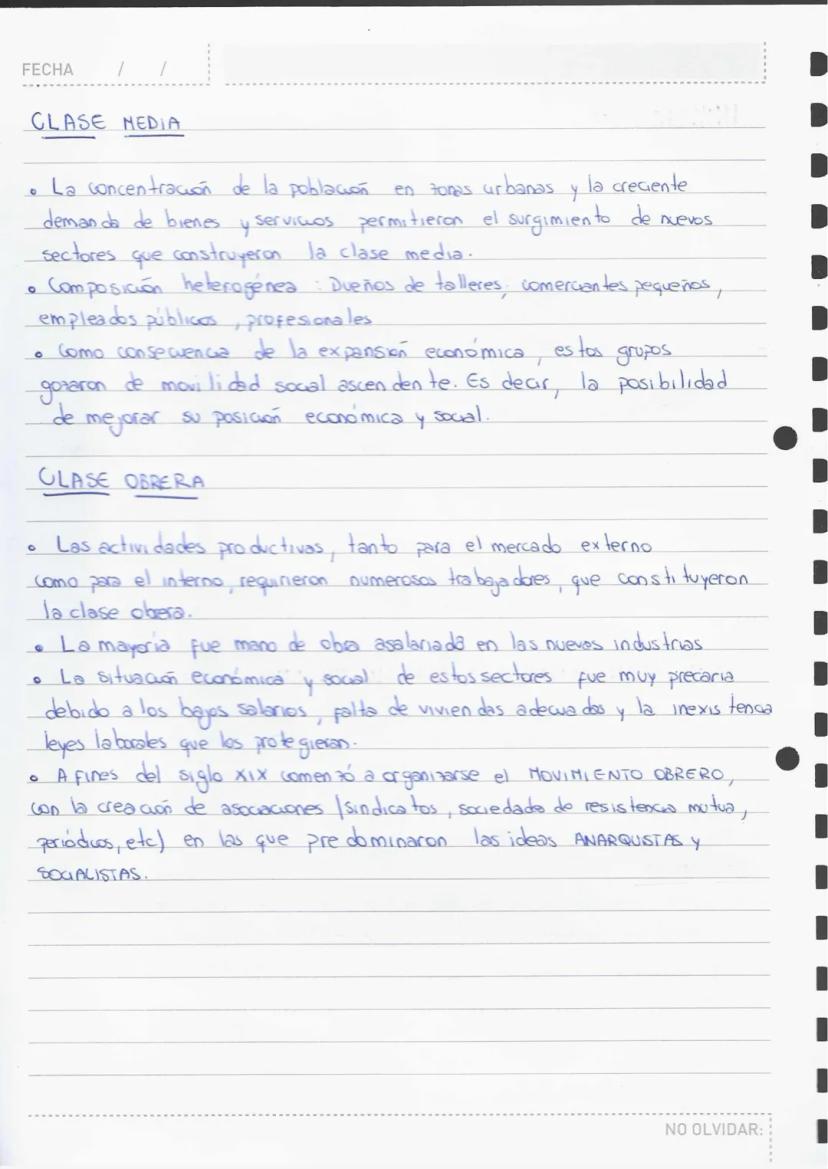 FECHA / /
CLASE MEDIA
• La concentración de la población en zonas urbanas y la creciente
demanda de bienes y servicios permitieron el surgimiento de nuevos
sectores que construyeron la clase media.
• Composición heterogénea : Dueños de talleres, comerciantes pequeños,
empleados públicos, profesionales
• Como consecuencia de la expansión económica, estos grupos
gozaron de movilidad social ascendente. Es decir, la posibilidad
de mejorar su posición económica y social.
CLASE OBRERA
• Las actividades productivas, tanto para el mercado externo
como para el interno, requirieron numerosos trabajadores, que constituyeron
la clase obera.
• La mayoría fue mano de obra asalariada en las nuevas industrias
• La situación económica y social de estos sectores fue muy precaria
debido a los bajos salarios, falta de viviendas adecuadas y la inexistencia
leyes laborales que los protegieran.
• A fines del siglo XIX comenzó a organizarse el MOVIMIENTO OBRERO,
con la creación de asociaciones (sindicatos, sociedade de resistencia mutua,
periódicos, etc) en las que predominaron las ideas ANARQUSTAS y
SOCIALISTAS.
NO OLVIDAR: